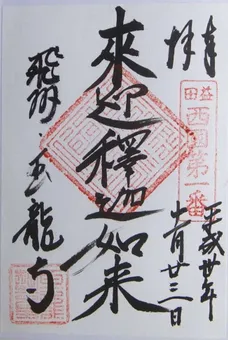 奉拝
益田
西国第一番
平成廿年
十一月廿三日
來迎釋迦如来
飛州・玉龍寺